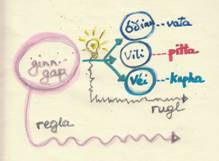 ginn-
gap
Óðinn--vata
Vili--pitta
Véi--kapha
rugl
regla